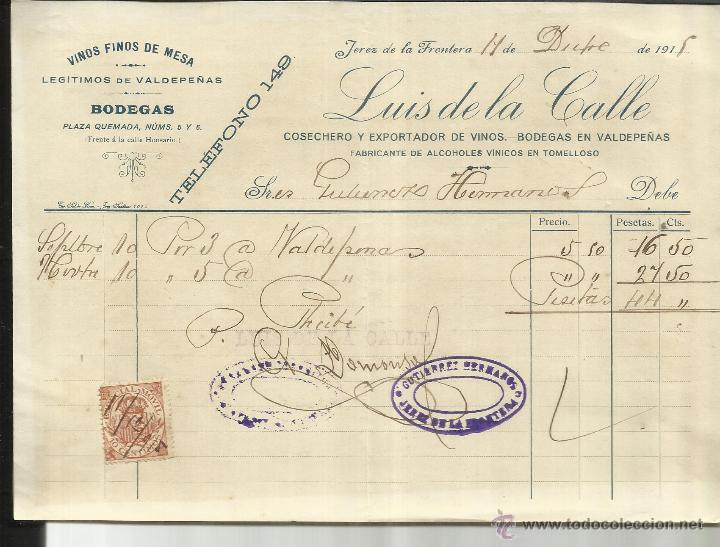 VINOS FINOS DE MESA
LEGÍTIMOS DE VALDEPEÑAS
BODEGAS
PLAZA QUEMADA, NÚMS. 5 Y 6.
(Frente á la calle Honsario.)
TELÉFONO 149
Jerez de la Frontera 11 de Dbre de 1915
Luis de la Calle
COSECHERO Y EXPORTADOR DE VINOS.—BODEGAS EN VALDEPEÑAS
FABRICANTE DE ALCOHOLES VÍNICOS EN TOMELLOSO
Sres Gutierrez Hermanos Debe
Precio. Pesetas. Cts.
Sepbre 10 Por 3 @ Valdepeñas 5 50 16 50
10 " 5 @ " " " 27 50
Pesetas 44 "
Recibí
P.
LUIS DE LA CALLE
GUTIERREZ HERMANOS
JEREZ DE LA FRONTERA
MÓVIL
www.todocoleccion.net